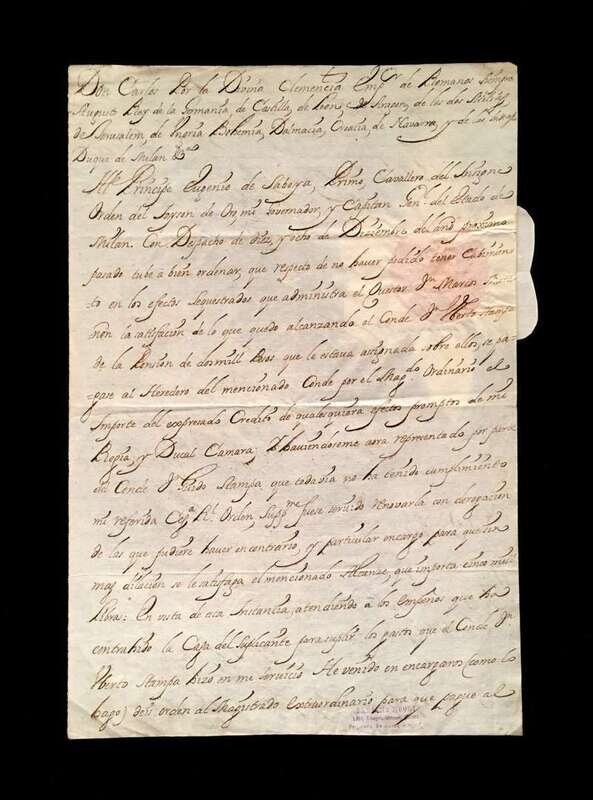 Don Carlos Por la Divina Clemencia Emp.r de Romanos siempre
Augusto Rey de la Germania, de Castilla, de Leon de Aragon, de las dos Sicilias
de Jerusalem, de Ungria Bohemia, Dalmacia, Croacia, de Navarra, y de las Indias
Duque de Milan &a
Principe Eugenio de Saboya, Primo, Cavallero del Insigne
Orden del Toyson de Oro, mi Governador, y Capitan Gen.l del Estado de
Milan. Con Despacho de diez, y ocho de Diziembre del año proximo
pasado tube à bien ordenar, que respecto de no haver podido tener Cabimien
to en los efectos sequestrados que administra el Questor Dn Marcos
non la satisfacion de lo que quedo alcanzando el Conde Dn Uberto Stampa
de la Pension de dosmill Pesos que le estava assignada sobre ellos, se pa
gase al Heredero del mencionado Conde por el Mag.do Ordinario el
Importe del expresado Credito de qualesquiera efectos promptos de mi
Regia, y Ducal Camara; Y haviendoseme aora representado por parte
del Conde Dn Stampa que todavia no ha tenido cumplimiento
mi referida R.l Orden, Supp.me fuese servido renovarla con derogacion
de las que pudiere haver encontrario, y particular encargo para que sin
mas dilacion se le satisfaga el mencionado Alcanze, que importa cinco mill
libras: En vista de esta Instancia, atendiendo a los Empeños que ha
contrahido la Casa del Suplicante para suplir los gastos que el Conde Dn
Uberto Stampa hizo en mi servicio He venido en encargaros (como lo
hago) deis orden al Magistrado Extraordinario para que pague al